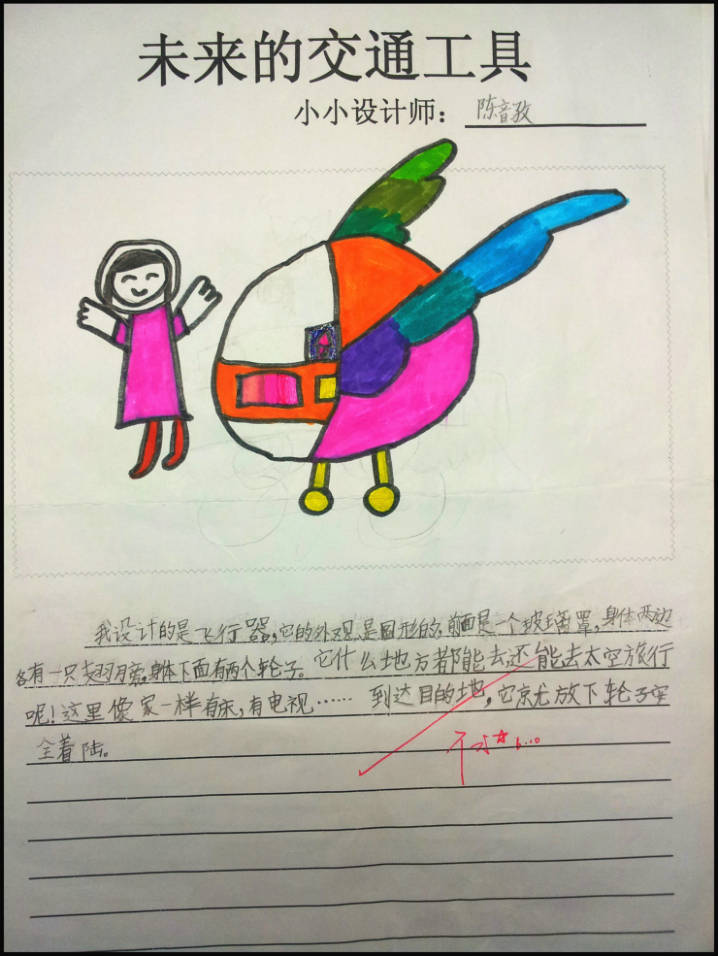 未来的交通工具
小小设计师：陈音孜
我设计的是飞行器，它的外观是圆形的，前面是一个玻璃罩，身体两边
各有一只翅膀，身体下面有两个轮子。它什么地方都能去，还能去太空旅行
呢！这里像家一样有床，有电视……到达目的地，它就放下轮子安
全着陆。